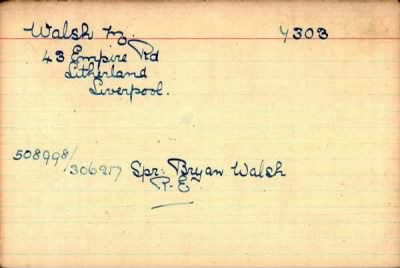 Walsh M. Y303
43 Empire Rd
Litherland
Liverpool.
508998/306917 Spr. Bryan Walsh
R.E.